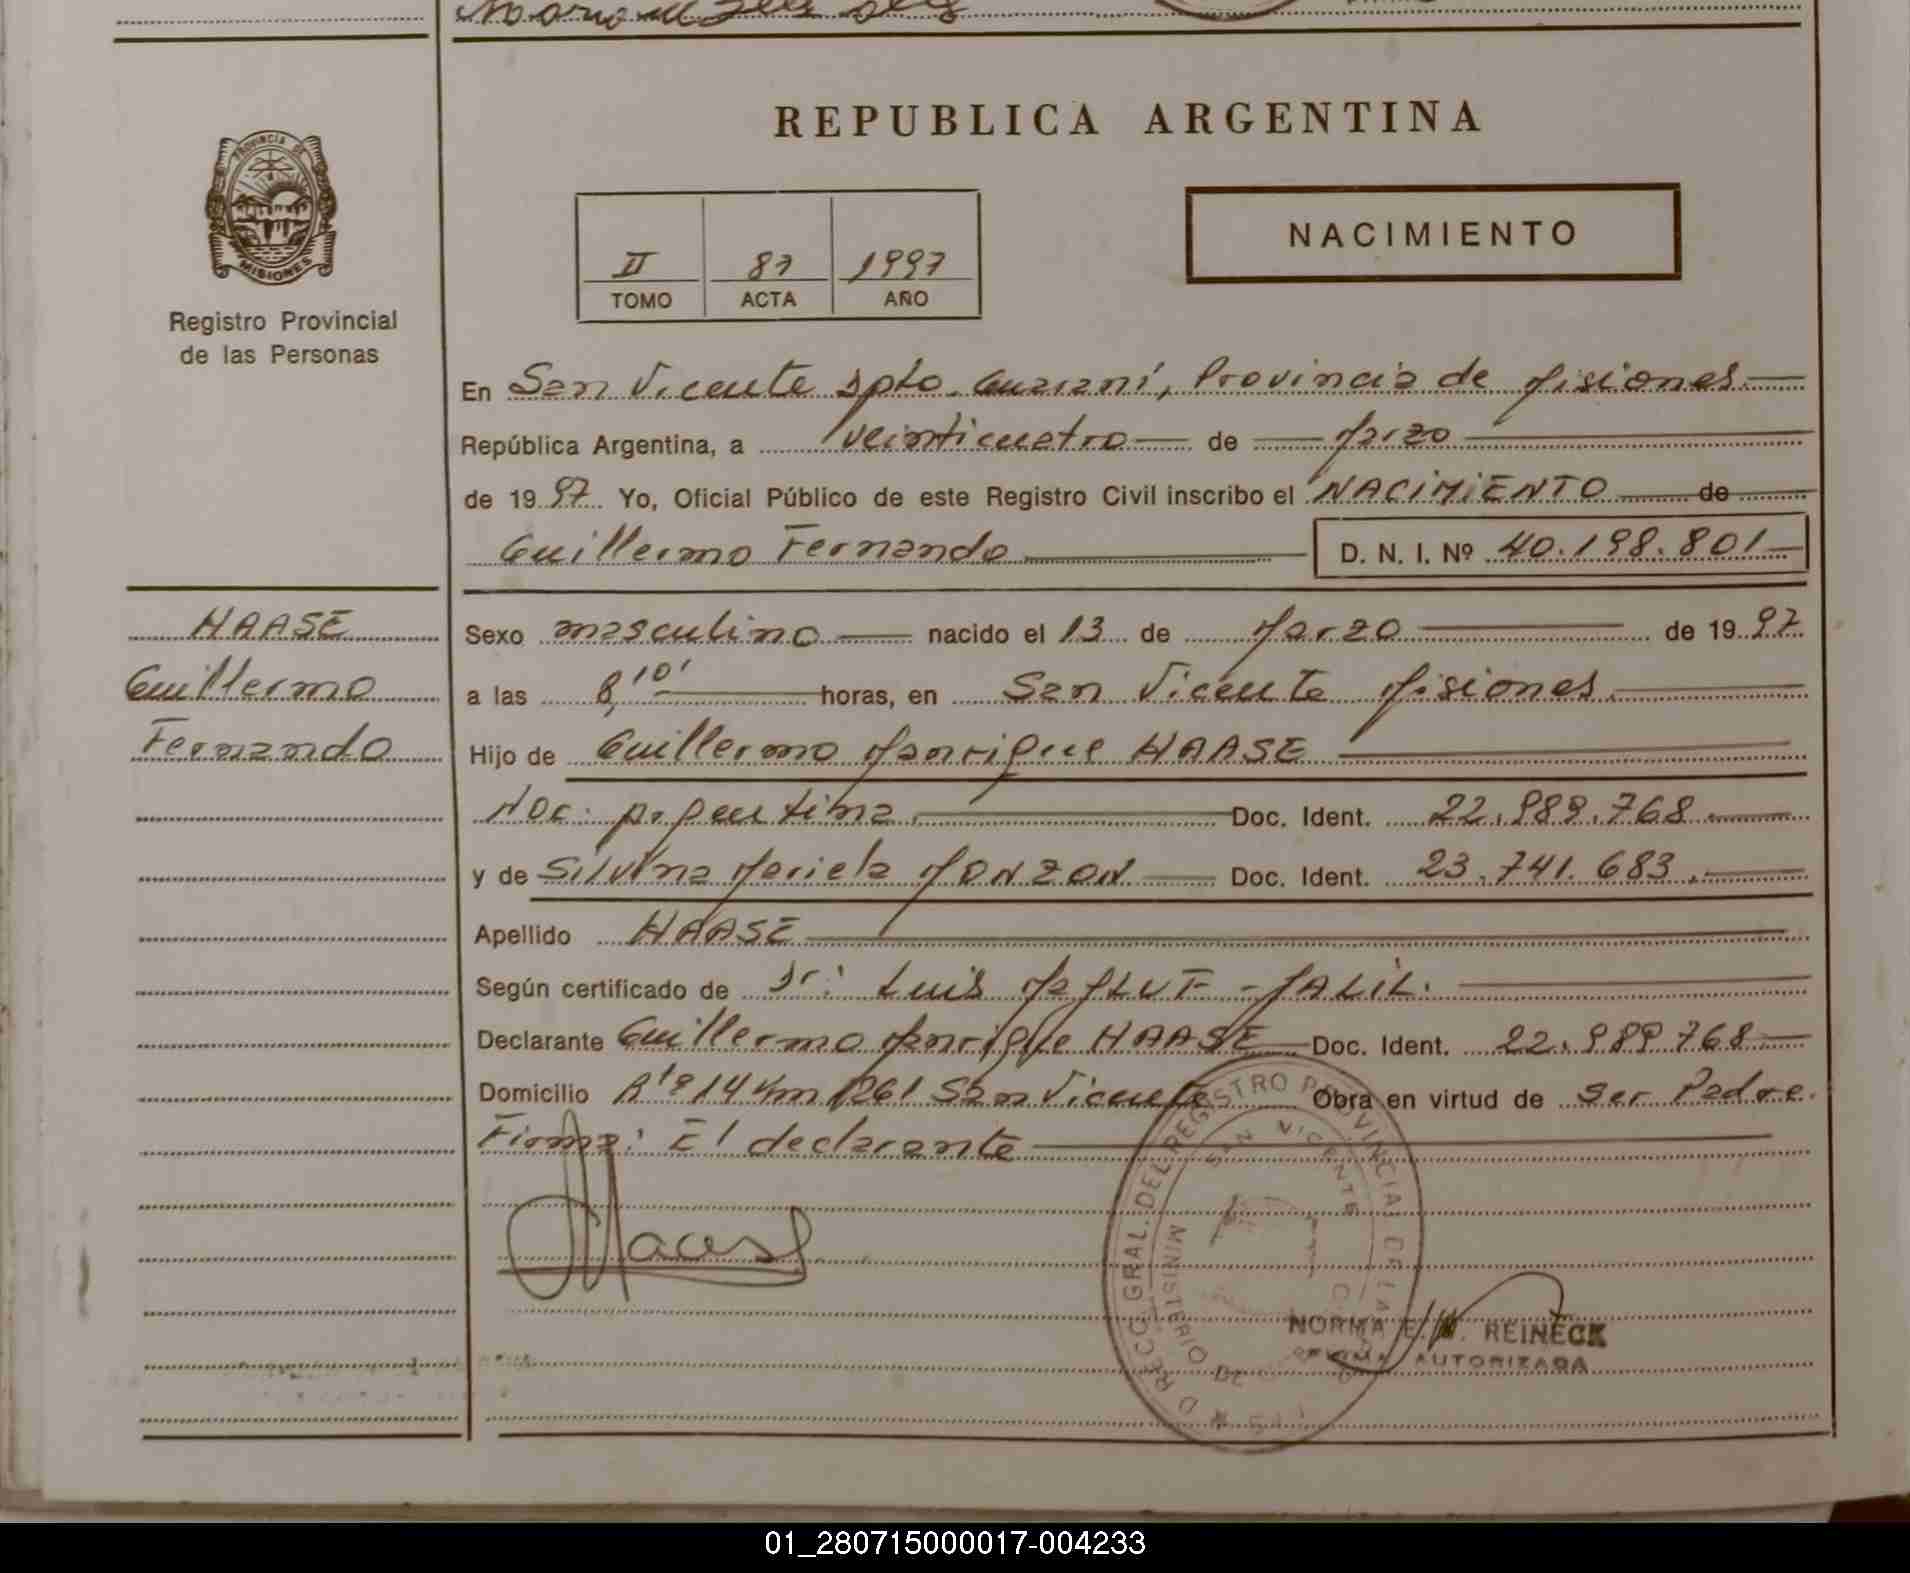 REPUBLICA ARGENTINA
PROVINCIA DE
MISIONES
Registro Provincial
de las Personas
II 87 1997
TOMO ACTA AÑO
NACIMIENTO
En San Vicente Dpto. Guaraní, Provincia de Misiones.
República Argentina, a veinticuatro de Marzo
de 1997. Yo, Oficial Público de este Registro Civil inscribo el NACIMIENTO de
Guillermo Fernando D. N. I. Nº 40.198.801
HAASE
Guillermo
Fernando
Sexo masculino nacido el 13 de Marzo de 1997.
a las 8,10' horas, en San Vicente Misiones.
Hijo de Guillermo Manrique HAASE
Nac. Argentina. Doc. Ident. 22.989.768.
y de Silvina Mariela MONZON Doc. Ident. 23.741.683.
Apellido HAASE
Según certificado de Dr: Luis JALIL.
Declarante Guillermo Manrique HAASE Doc. Ident. 22.989.768
Domicilio Rta 14 Km 1261 San Vicente Obra en virtud de ser Padre.
Firma: El declarante
Haase
DIRECC. GRAL. DEL REGISTRO PROVINCIAL DE LAS
SAN VICENTE
MINISTERIO DE
NORMA E. REINECK
FIRMA AUTORIZADA
01_280715000017-004233